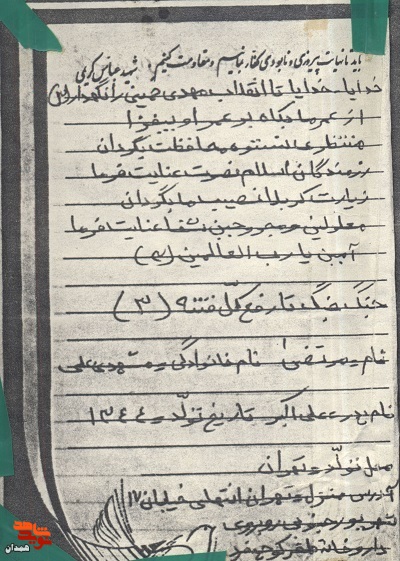 باید تا نهایت پیروزی و نابودی کفار بمانیم و مقاومت کنیم. شهید عباس کرمی
خدایا، خدایا تا انقلاب مهدی خمینی را نگهدار
از عمر ما بکاه بر عمر او بیفزا
منتظری ستوه محافظت بگردان
رزمندگان اسلام نصرت عنایت فرما
زیارت کربلا نصیب ما بگردان
معلولین و مجروحین شفا عنایت فرما
آمین یا رب العالمین
جنگ جنگ تا رفع کل فتنه (۳)
نام = مرتضی نام خانوادگی = مشهدی علی
نام پدر = علی اکبر تاریخ تولد = ۱۳۴۴
محل تولد = تهران
آدرس منزل = تهران انتهای خیابان ۱۷
شهریور جنوبی روبروی
داروخانه ظفر کوچه
نوید شاهد
همدان